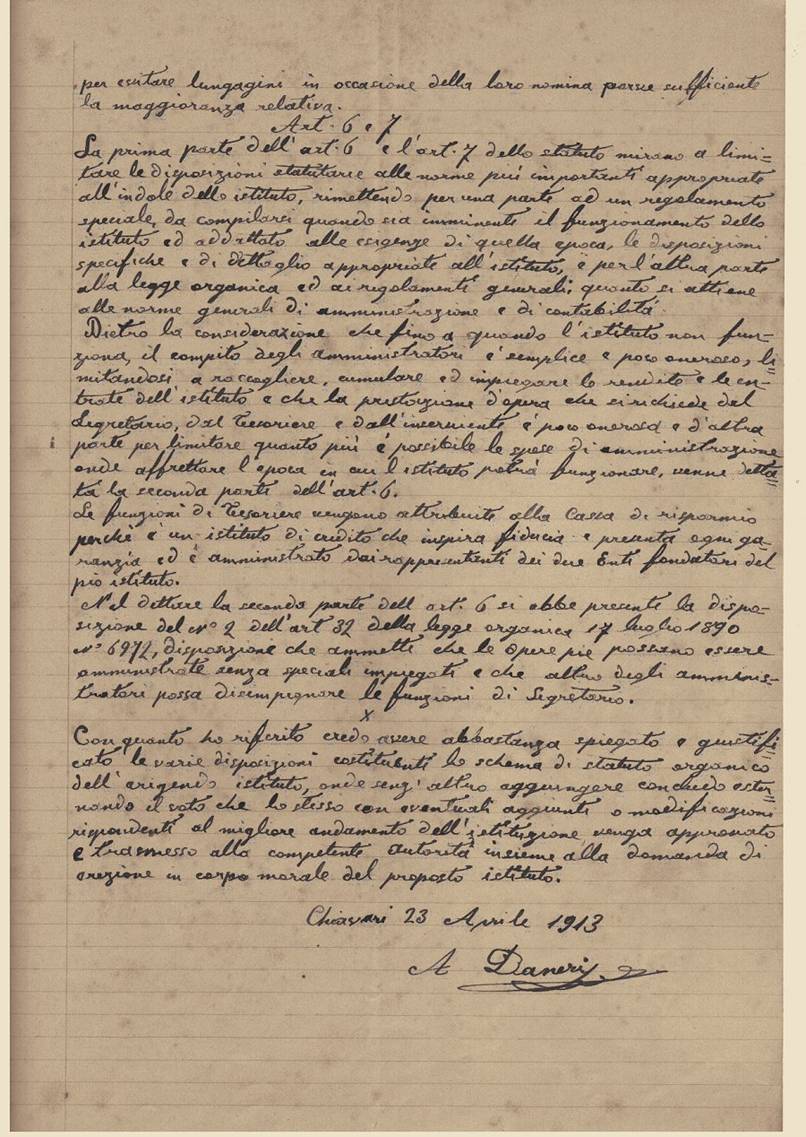 per evitare lungagini in occasione della loro nomina parve sufficiente
la maggioranza relativa.
Art. 6 e 7
La prima parte dell'art. 6 e l'art. 7 dello statuto mirano a limi=
tare le disposizioni statutarie alle norme più importanti appropriate
all'indole dello istituto, rimettendo per una parte ad un regolamento
speciale, da compilarsi quando sia imminente il funzionamento dello
istituto ed addattato alle esigenze di quella epoca, le disposizioni
specifiche e di dettaglio appropriate all'istituto, e per l'altra parte
alla legge organica ed ai regolamenti generali, quanto si attiene
alle norme generali di amministrazione e di contabilità.
Dietro la considerazione che fino a quando l'istituto non fun=
ziona, il compito degli amministratori è semplice e poco oneroso, li=
mitandosi a raccogliere, cumulare ed impiegare le rendite e le en=
trate dell'istituto e che la prestazione d'opera che si richiede dal
Segretario, dal Tesoriere e dall'inserviente è poco onerosa e d'altra
parte per limitare quanto più è possibile le spese di amministrazione
onde affrettare l'epoca in cui l'istituto potrà funzionare, venne detta=
ta la seconda parte dell'art. 6.
Le funzioni di Tesoriere vengono attribuite alla Cassa di risparmio
perchè è un istituto di credito che inspira fiducia e presenta ogni ga=
ranzia ed è amministrato dai rappresentanti dei due Enti fondatori del
pio istituto.
Nel dettare la seconda parte dell'art. 6 si ebbe presente la dispo=
sizione del Nº 2 dell'art 32 della legge organica 17 luglio 1890
Nº 6972, disposizione che ammette che le Opere pie possano essere
amministrate senza speciali impiegati e che altro degli amminis=
tratori possa disimpegnare le funzioni di Segretario.
x
Con quanto ho riferito credo avere abbastanza spiegato e giustifi=
cato le varie disposizioni costituenti lo schema di statuto organico
dell'erigendo istituto, onde senz'altro aggiungere conchiudo ester=
nando il voto che lo stesso con eventuali aggiunte o modificazioni
rispondenti al migliore andamento dell'istituzione venga approvato
e trasmesso alla competente autorità insieme alla domanda di
erezione in corpo morale del proposto istituto.
Chiavari 23 Aprile 1913
A Daneri